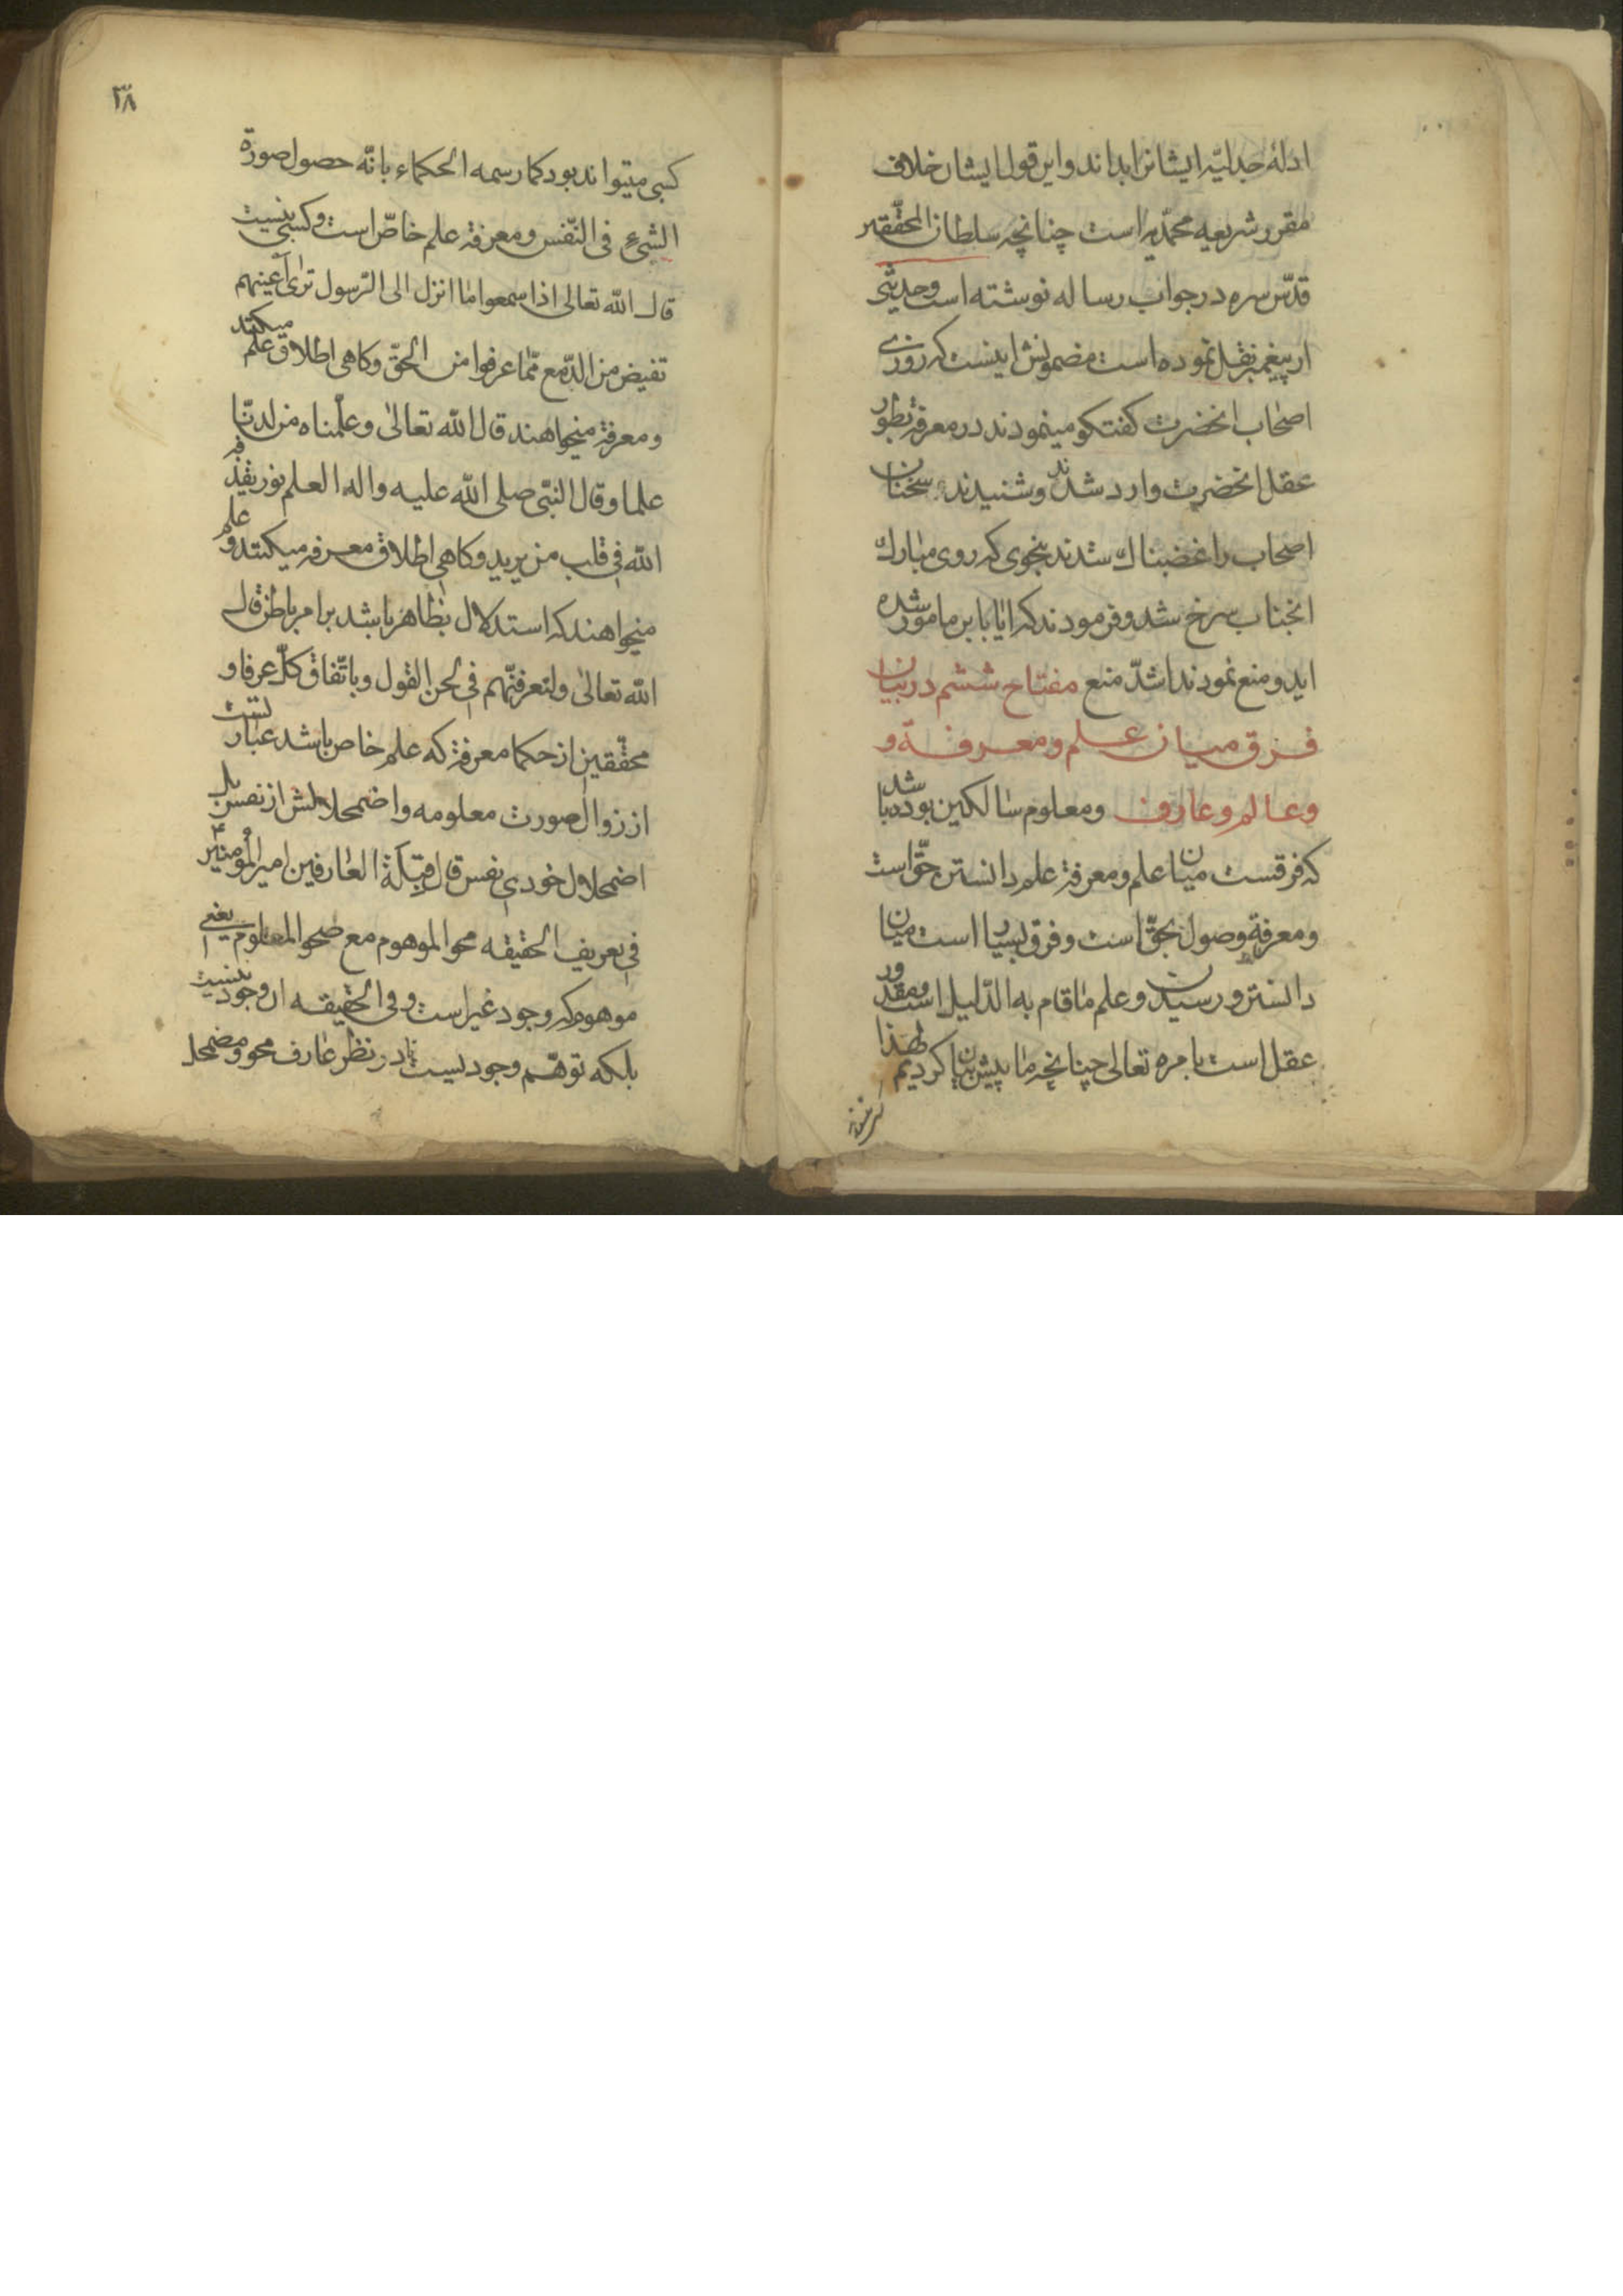 ادلهٔ جدلیّه ایشانرا بداند و این قول ایشان خلاف
مقرر شریعه محمّدیه است چنانچه سلطان المحقّقین
قدّس سره در جواب رساله نوشته است وحدیثی
از پیغمبر نقل نموده است مضمونش اینست که روزی
اصحاب انحضرت کفتکو مینمودند در معرفة بطور
عقل انحضرت وارد شدند و شنیدند سخنان
اصحاب را غضبناک شدند بنحوی که روی مبارک
انجناب سرخ شد و فرمودند که ایا باین مامور شده
اید و منع نمودند اشدّ منع مفتاح ششم در بیان
فرق میان علم و معرفة و
وعالم و عارف ومعلوم سالکین بوده باشد
که فرقست میان علم و معرفة علم دانستن حقّ است
ومعرفة وصول بحقّ است و فرق بسیار است میان
دانستن و رسیدن و علم ما قام به الدّلیل است ومقدور
عقل است بامره تعالی چنانچه ما پیش بیان کردیم لهذا
٣٨
کسبی میتواند بود کما رسمه الحکماء بانّه حصول صورة
الشیء فی النّفس و معرفة علم خاصّ است و کسبی نیست
قال الله تعالی اذا سمعوا ما انزل الی الرّسول تری اعینهم
تفیض من الدّمع ممّا عرفوا من الحقّ وکاهی اطلاق علم میکنند
و معرفة میخواهند قال الله تعالی وعلّمناه من لدنّا
علما و قال النبّی صلی الله علیه واله العلم نور یقذفه
الله فی قلب من یرید وکاهی اطلاق معرفه میکنند و علم
میخواهند که استدلال بظاهر باشد بر امر باطن قال
الله تعالی ولتعرفنّهم فی لحن القول و باتّفاق کلّ عرفا و
محقّقین از حکما معرفة که علم خاص باشد عبارتست
از زوال صورت معلومه واضمحلالش از نفس بل
اضمحلال خودی نفس قال قبلة العارفین امیر المؤمنین ع
فی تعریف الحقیقه محو الموهوم مع صحو المعلوم یعنی
موهوم که وجود غیر است و فی الحقیقه ان وجود نیست
بلکه توهّم وجودیست در نظر عارف محو و مضمحل